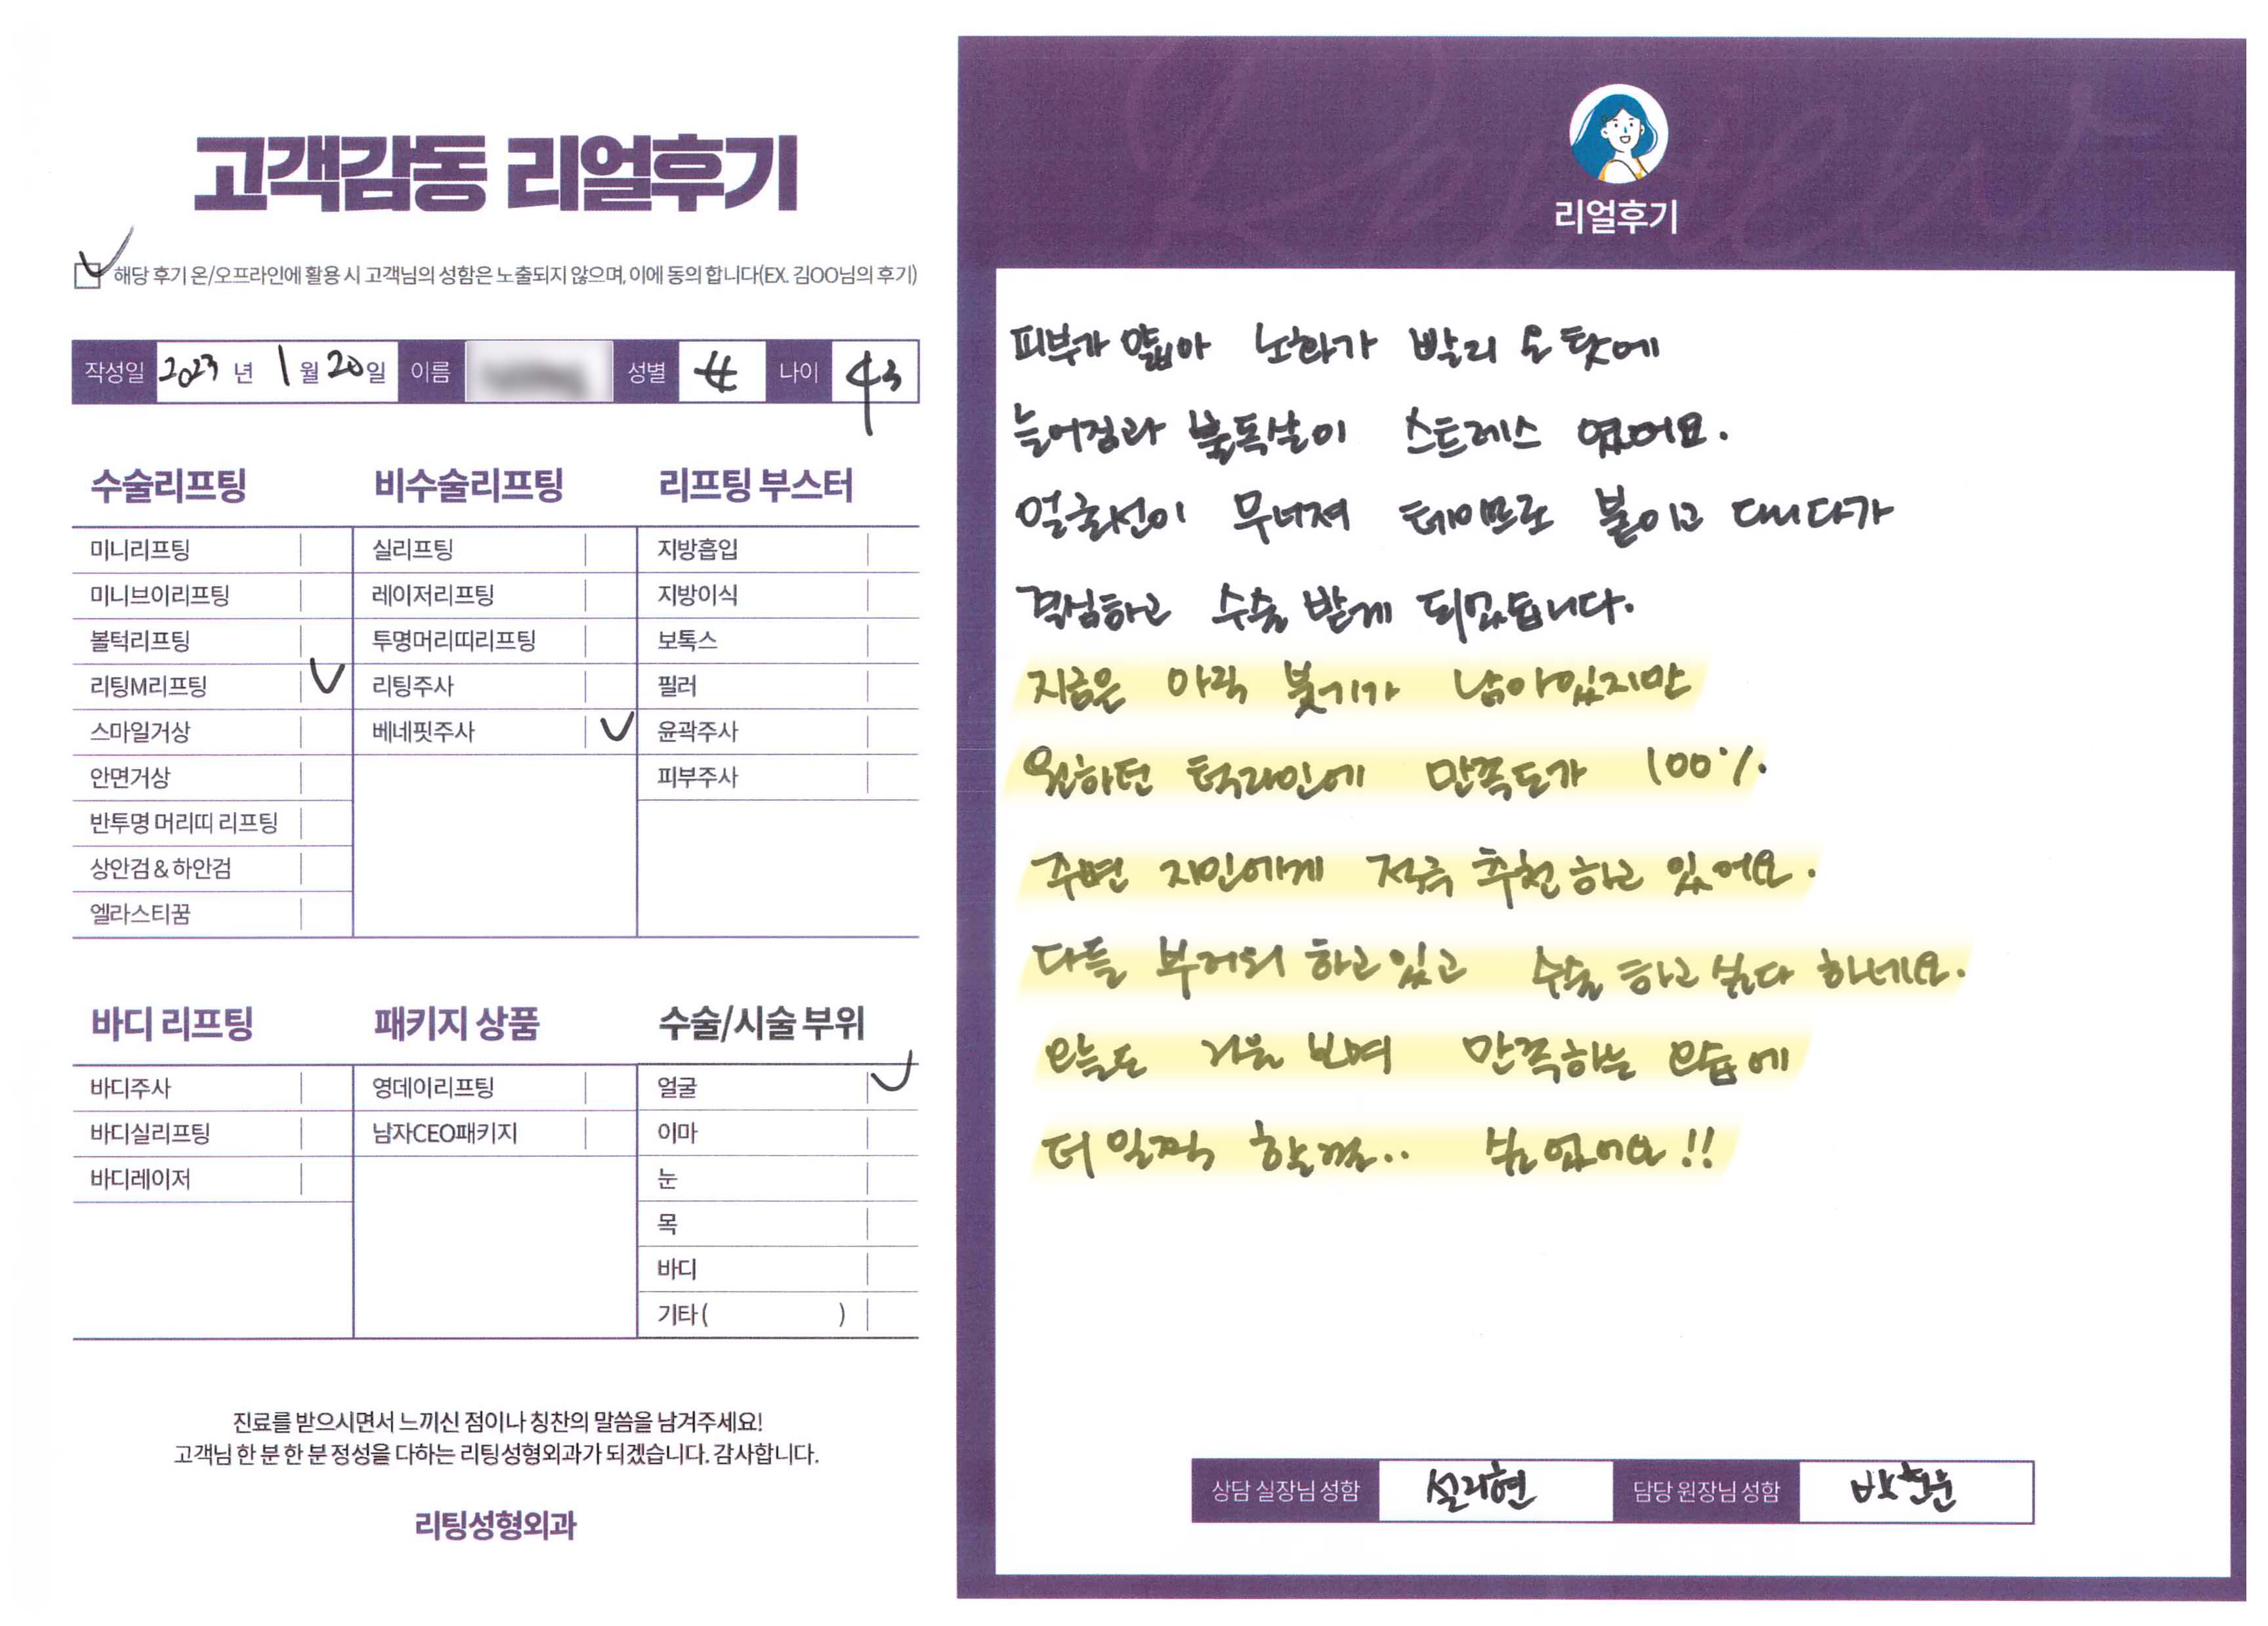 고객감동 리얼후기
해당 후기 온/오프라인에 활용 시 고객님의 성함은 노출되지 않으며, 이에 동의 합니다(EX. 김OO님의 후기)
작성일 2023 년 1 월 20 일 이름 성별 女 나이 43
수술리프팅 비수술리프팅 리프팅 부스터
미니리프팅 실리프팅 지방흡입
미니브이리프팅 레이저리프팅 지방이식
볼턱리프팅 투명머리띠리프팅 보톡스
리팅M리프팅 리팅주사 필러
스마일거상 베네핏주사 윤곽주사
안면거상 피부주사
반투명 머리띠 리프팅
상안검 & 하안검
엘라스티꿈
바디 리프팅 패키지 상품 수술/시술 부위
바디주사 영데이리프팅 얼굴
바디실리프팅 남자CEO패키지 이마
바디레이저 눈
목
바디
기타 ( )
진료를 받으시면서 느끼신 점이나 칭찬의 말씀을 남겨주세요!
고객님 한 분 한 분 정성을 다하는 리팅성형외과가 되겠습니다. 감사합니다.
리팅성형외과
Review
리얼후기
피부가 얇아 노화가 빨리 온 탓에
늘어짐과 불독살이 스트레스 였어요.
얼굴선이 무너져 테이프로 붙이고 다니다가
결심하고 수술 받게 되었습니다.
지금은 아직 붓기가 남아있지만
원하던 턱라인에 만족도가 100%
주변 지인에게 적극 추천하고 있어요.
다들 부러워 하고 있고 수술 하고 싶다 하네요.
오늘도 거울 보며 만족하는 모습에
더 일찍 할껄.. 싶었어요!!
상담 실장님 성함 설리현 담당 원장님 성함